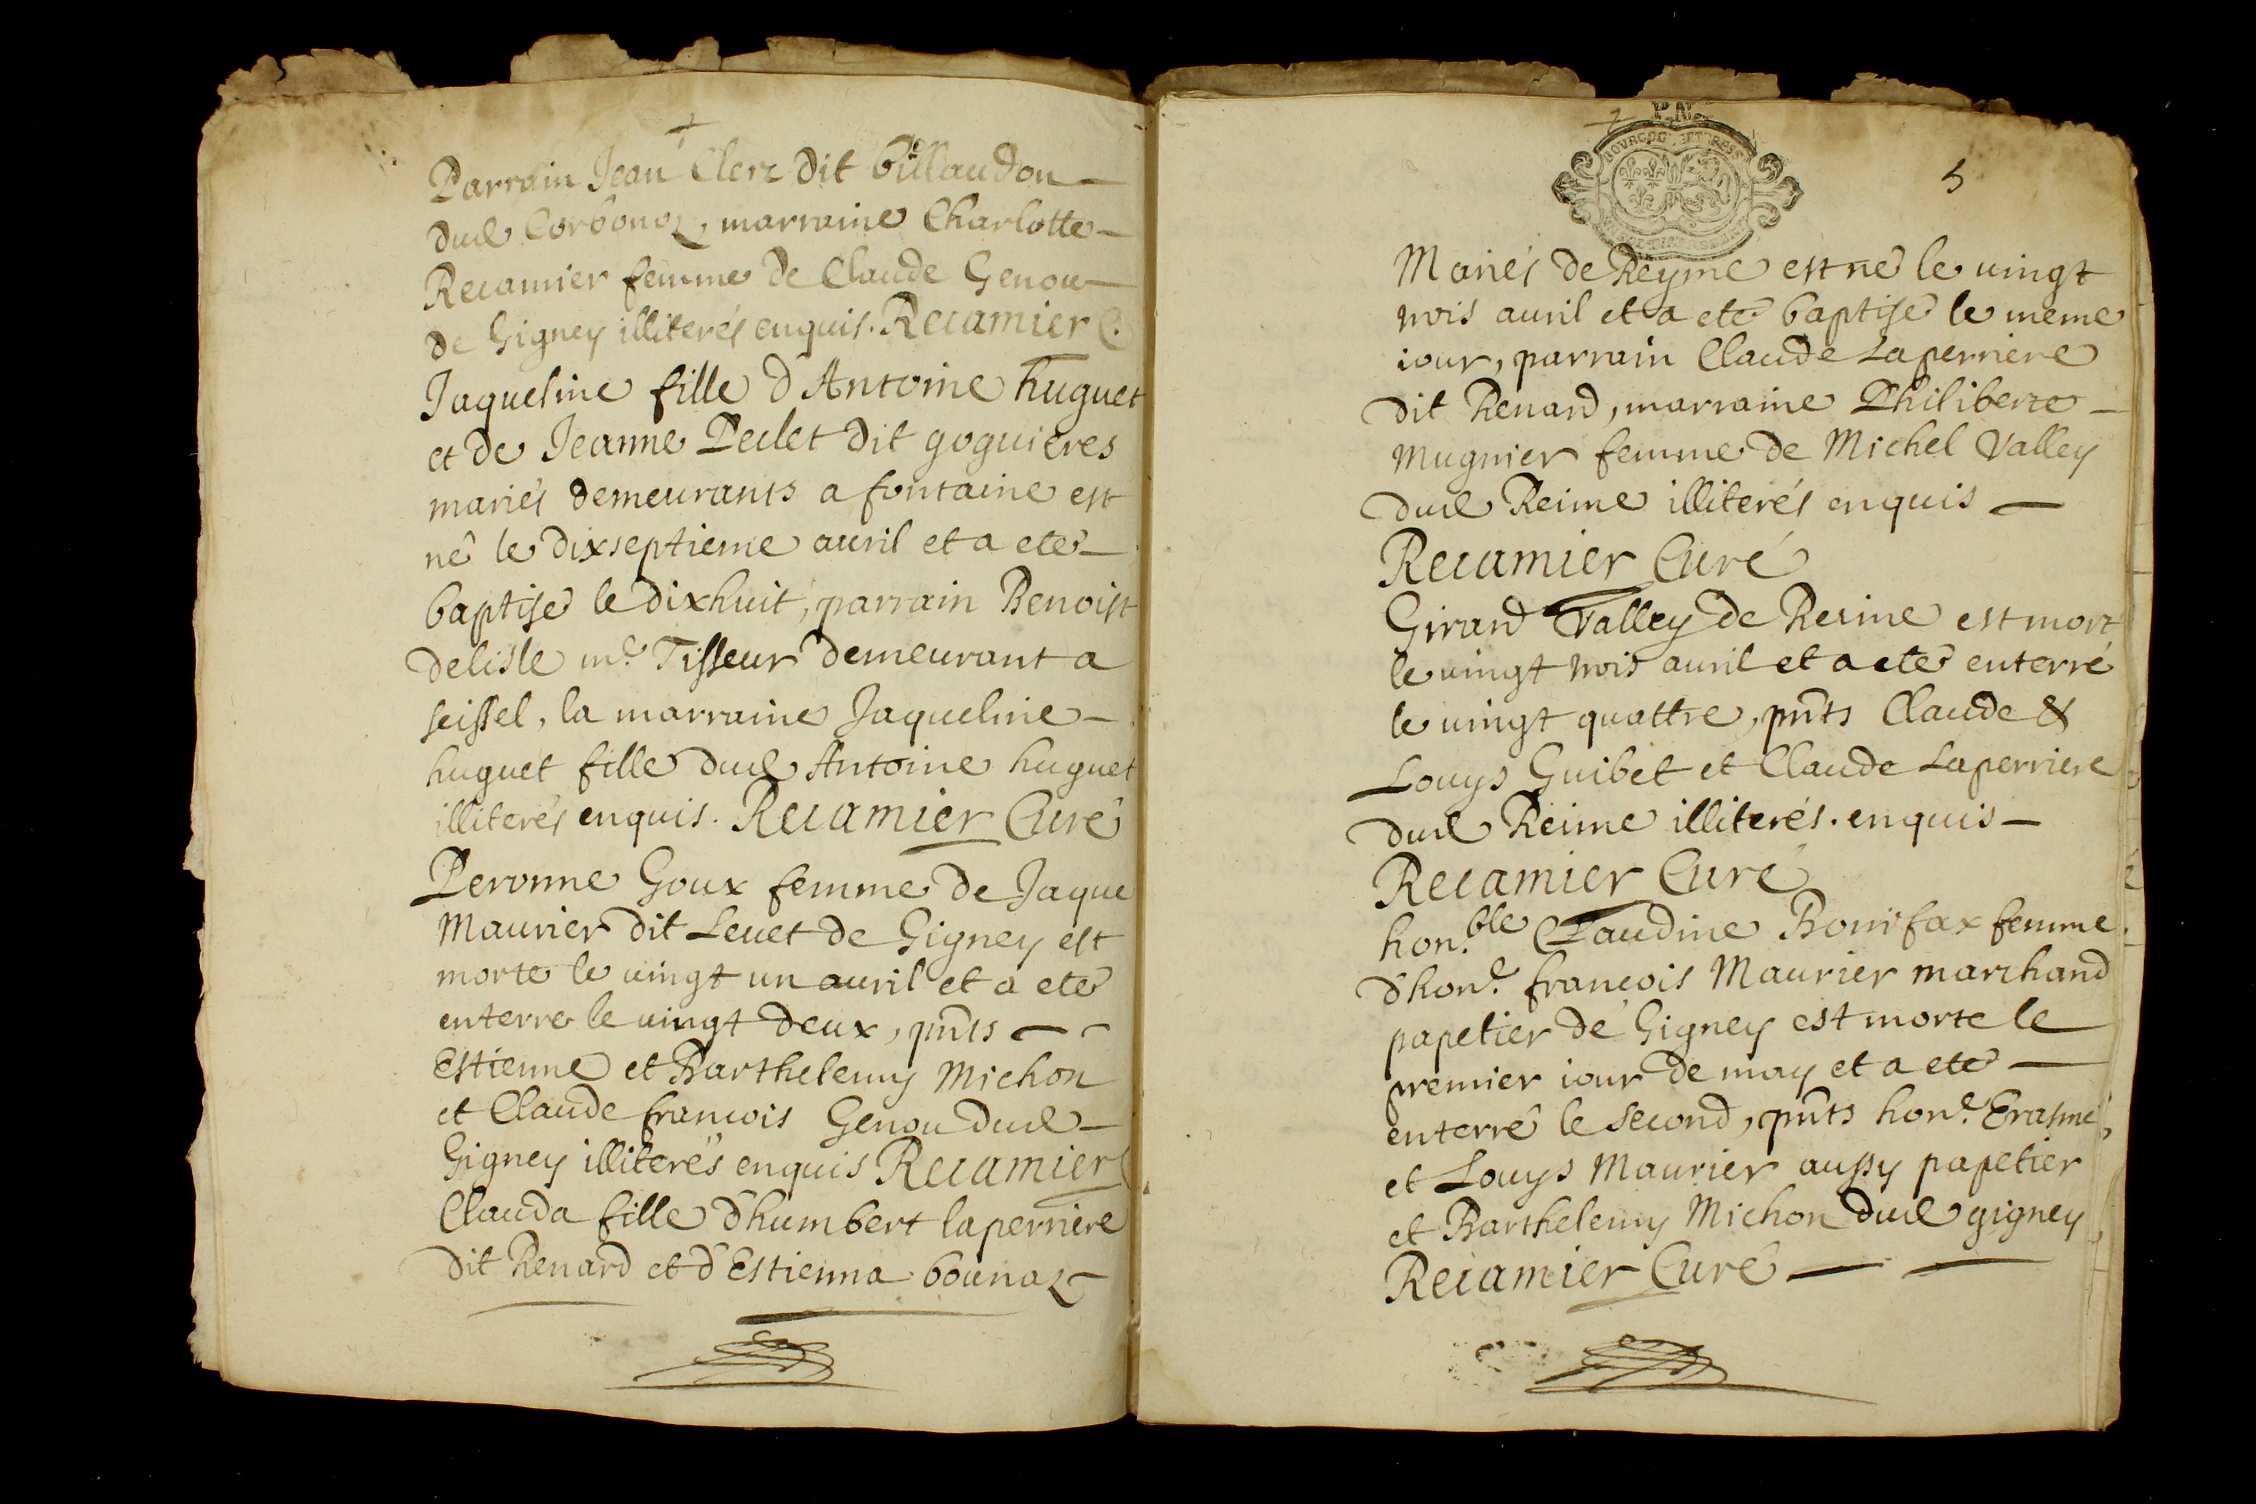 Parrain Jean Clerc dit billaudon
dud Corbonoz, marraine Charlotte
Recamier femme de Claude Genou
de Gigney illiterés enquis. Recamier C.
Jaqueline fille d'Antoine huguet
et de Jeanne Peclet dit goguieres
mariés demeurants a fontaine est
né le dixseptieme auril et a eté
baptisé le dixhuit, parrain Benoist
delisle m.e Tisseur demeurant a
seissel, la marraine Jaqueline
huguet fille dud Antoine huguet
illiterés enquis. Recamier Curé
Peronne Goux femme de Jaque
Maurier dit Leuet de Gigney est
morte le uingt un auril et a eté
enterre le uingt deux, pnts
Estienne et Barthelemy Michon
et Claude francois Genou dud
Gigney illiterés enquis Recamier C
Clauda fille d'humbert laperriere
dit Renard et d'Estienna bounaz
5
BOURGOG ET BRESSE
Mariés de Reyme est né le uingt
trois auril et a eté baptisé le meme
iour, parrain Claude Laperriere
dit Renard, marraine Philiberte
Mugnier femme de Michel Valley
dud Reime illiterés enquis
Recamier Curé
Girard Valley de Reime est mort
le uingt trois auril et a eté enterré
le uingt quattre, pnts Claude &
Louys Guibet et Claude Laperriere
dud Reime illiterés. enquis
Recamier Curé
hon.ble Claudine Bonifax femme
d'hon.e francois Maurier marchand
papetier de Gigney est morte le
premier iour de may et a eté
enterré le second, pnts hon.e Erasme,
et Louys Maurier aussy papetier
et Barthelemy Michon dud gigney
Recamier Curé